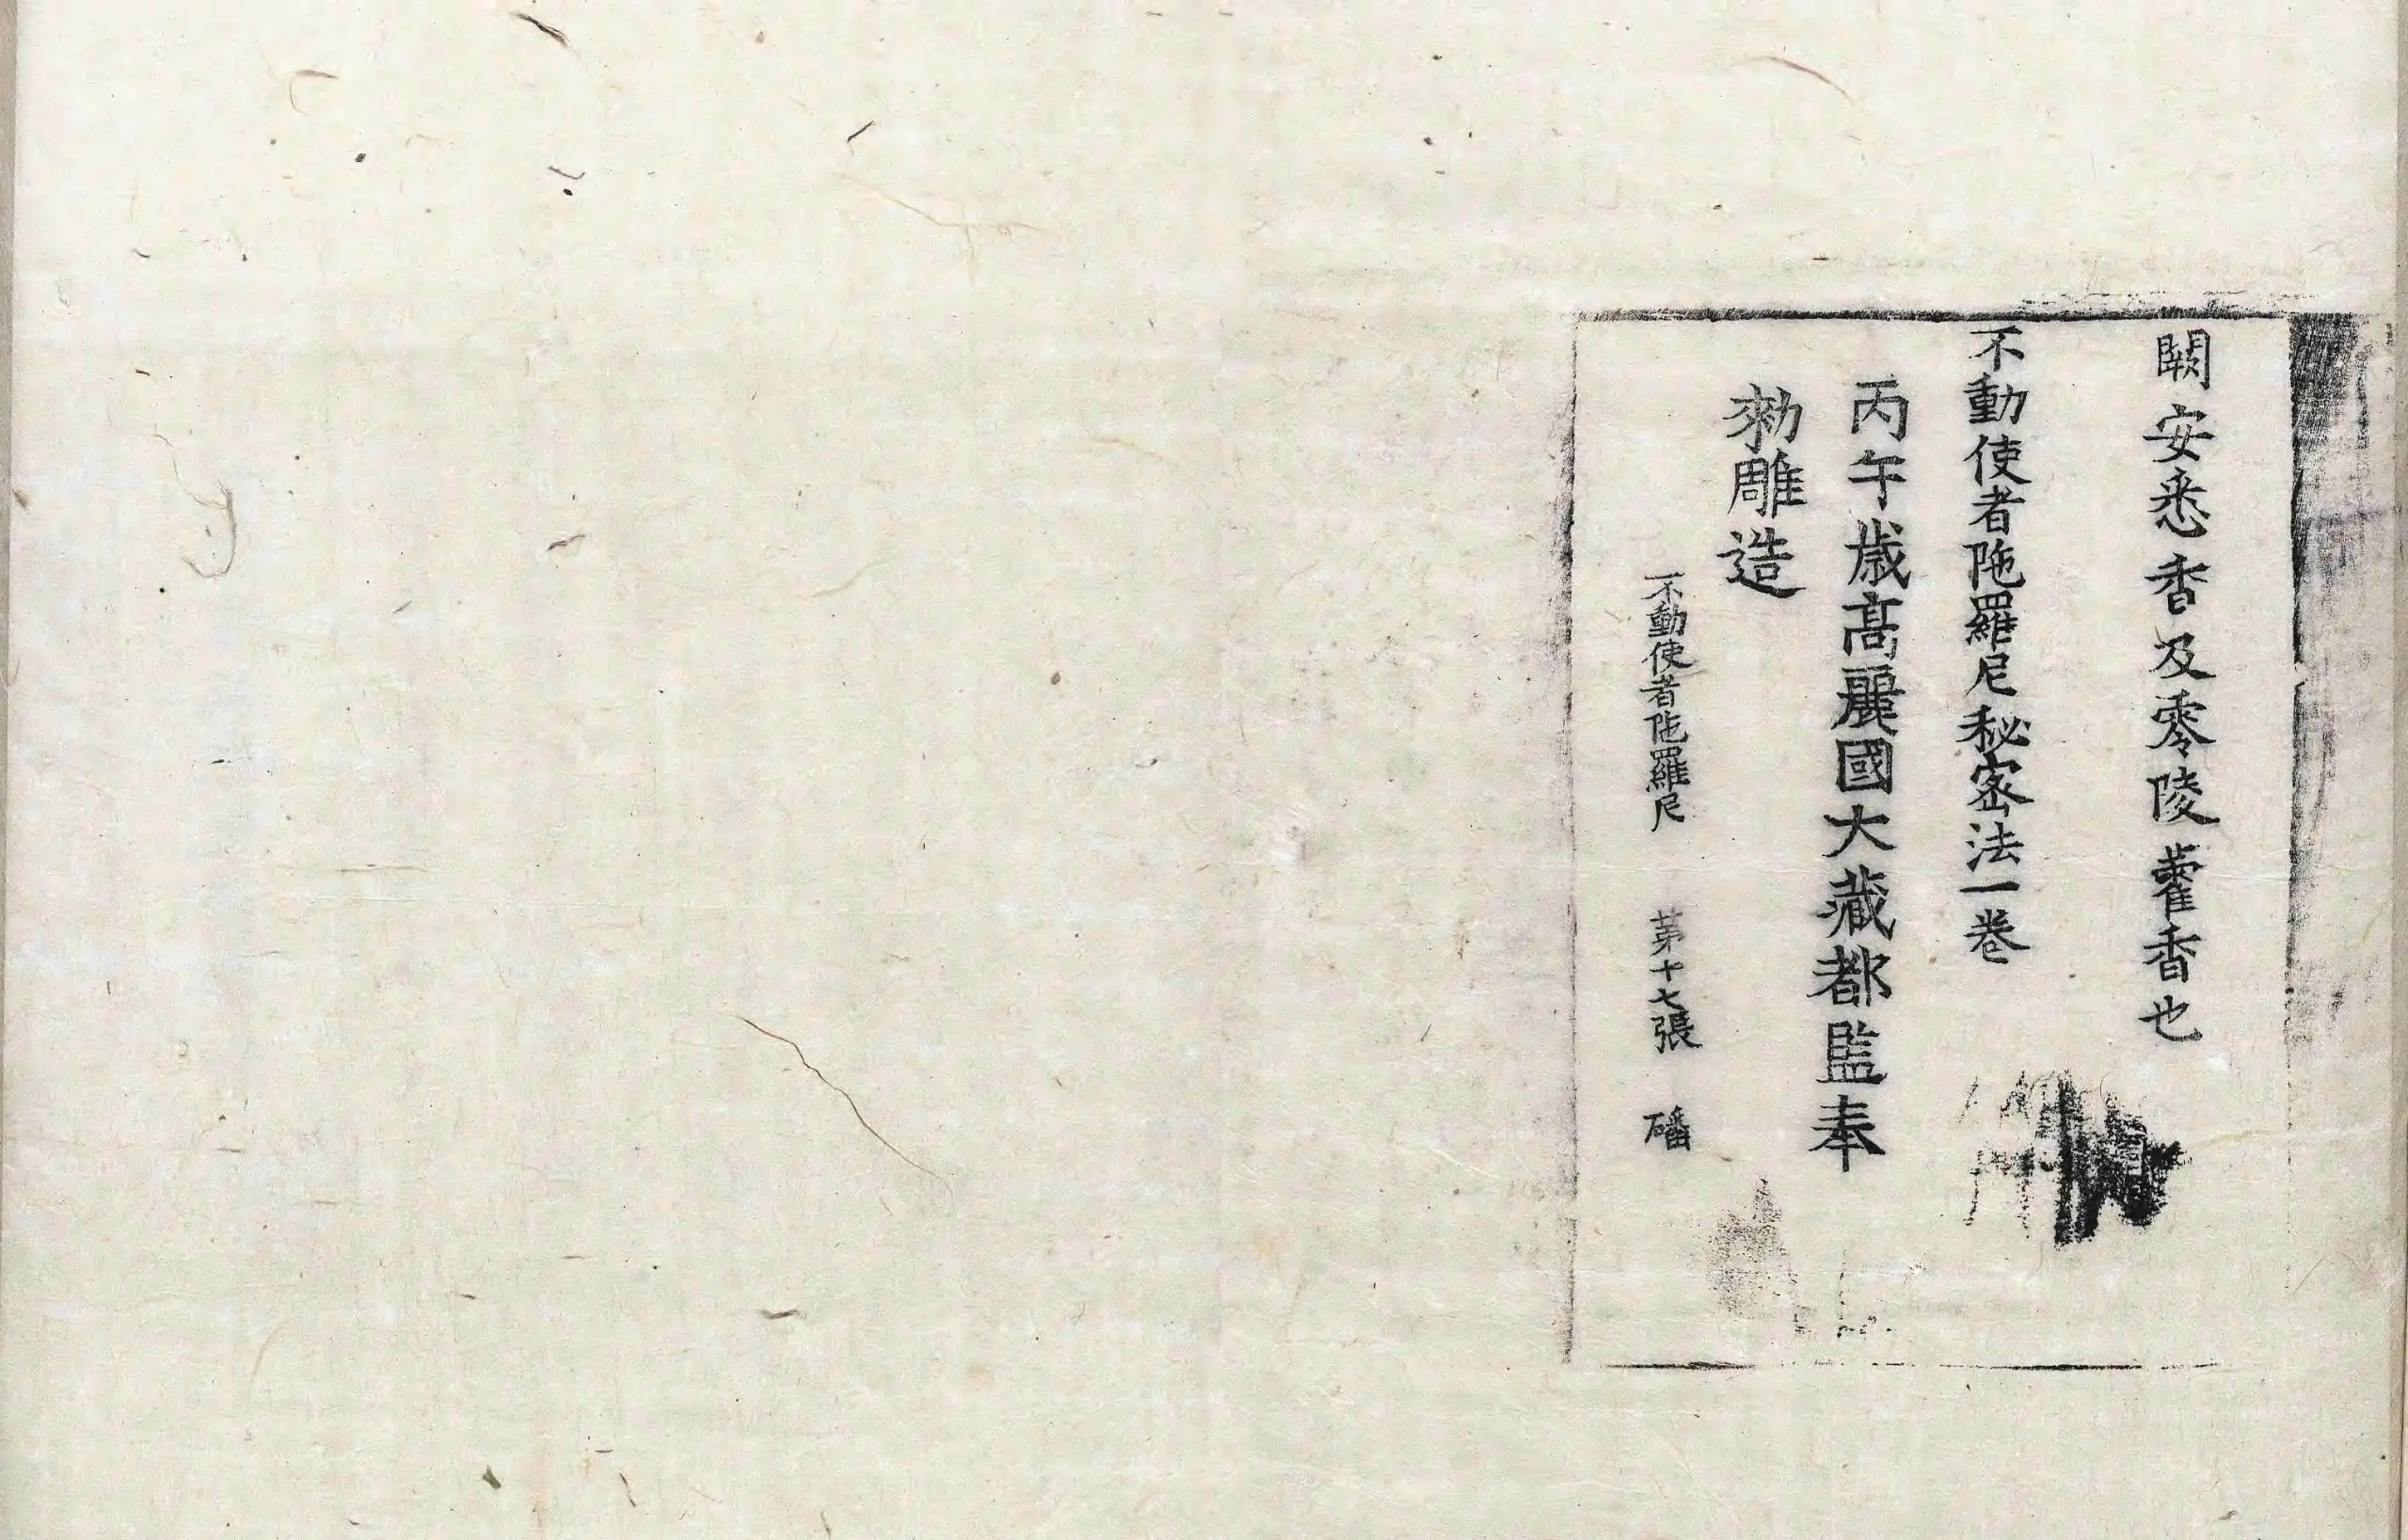 闕安悉香及零陵藿香也
不動使者陁羅尼秘密法一卷
丙午歲高麗國大藏都監奉
勑雕造
不動使者陁羅尼 苐十七張 磻